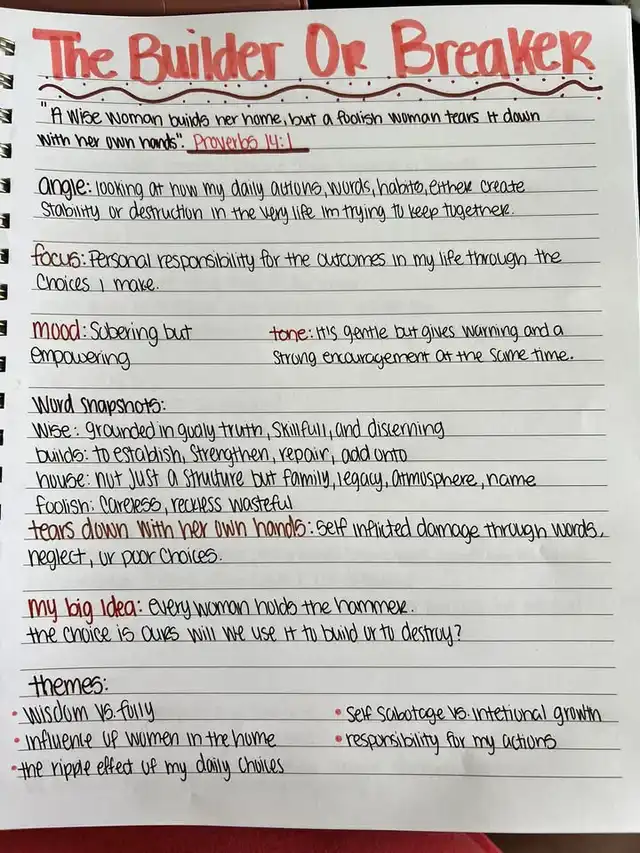 The Builder Or Breaker
"A wise woman builds her home, but a foolish woman tears it down
with her own hands". Proverbs 14:1
angle: looking at how my daily actions, words, habits, either create
stability or destruction in the very life im trying to keep together.
focus: Personal responsibility for the outcomes in my life through the
choices I make.
mood: Sobering but
empowering
tone: it's gentle but gives warning and a
strong encouragement at the same time.
Word snapshots:
Wise: grounded in godly truth, skillfull, and discerning
builds: to establish, strengthen, repair, add onto
house: not just a structure but family, legacy, atmosphere, name
foolish: careless, reckless wasteful
tears down with her own hands: self inflicted damage through words,
neglect, or poor choices.
my big idea: every woman holds the hammer.
the choice is ours will we use it to build or to destroy?
themes:
• wisdom vs. folly
• influence of women in the home
• the ripple effect of my daily choices
• self sabotage vs. intetional growth
• responsibility for my actions